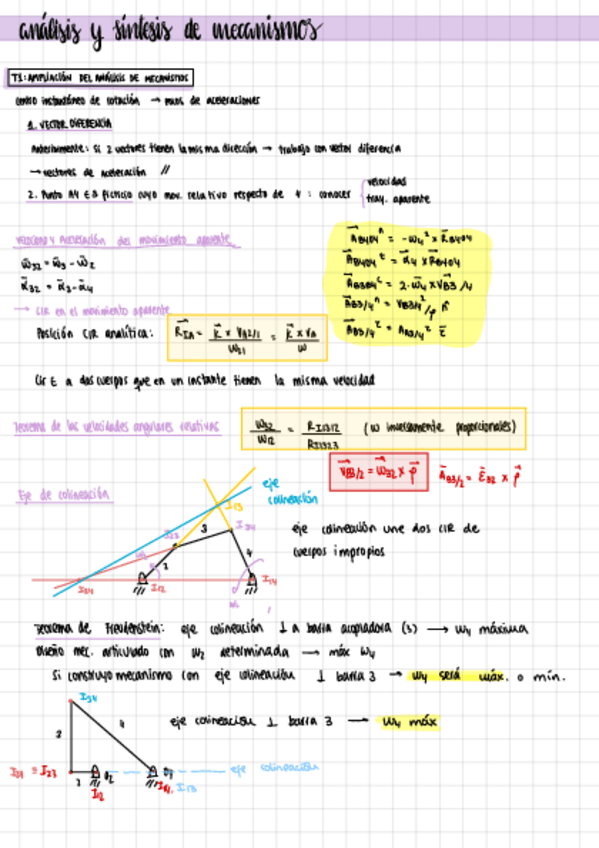 análisis y síntesis de mecanismos
T1: AMPLIACIÓN DEL ANÁLISIS DE MECANISMOS
centro instantáneo de rotación → de aceleraciones
1. VECTOR DIFERENCIA
Anteriormente: si 2 vectores tienen la misma dirección → trabajo con vector diferencia
→ vectores de aceleración //
2. Punto A4 ∈ B ficticio cuyo mov. relativo respecto de 4 : conocer { velocidad
tray. aparente
velocidad y aceleración del movimiento aparente
ω̄32 = ω̄3 - ω̄2
ᾱ32 = ᾱ3 - ᾱ2
→ CIR en el movimiento aparente
Posición CIR analítica:
CIR ∈ a dos cuerpos que en un instante tienen la misma velocidad
Teorema de las velocidades angulares relativas
ω32 / ω12 = RI1312 / RI1323 (ω inversamente proporcionales)
V̄B3/2 = ω̄32 × ρ̄
Eje de colineación
eje
colineación
I13
I34
I23
3
2
4
I24
I12
I14
eje colineación une dos CIR de
cuerpos impropios
Teorema de Freudenstein: eje colineación ⊥ a barra acopladora (3) → ω4 máxima
Diseño mec. articulado con ω2 determinada → máx ω4
Si construyo mecanismo con eje colineación ⊥ barra 3 → ω4 será máx. o mín.
I34
3
4
eje colineación ⊥ barra 3 → ω4 máx
I24 ≡ I23
2
O2
O4
eje colineación
I12
I14, I13